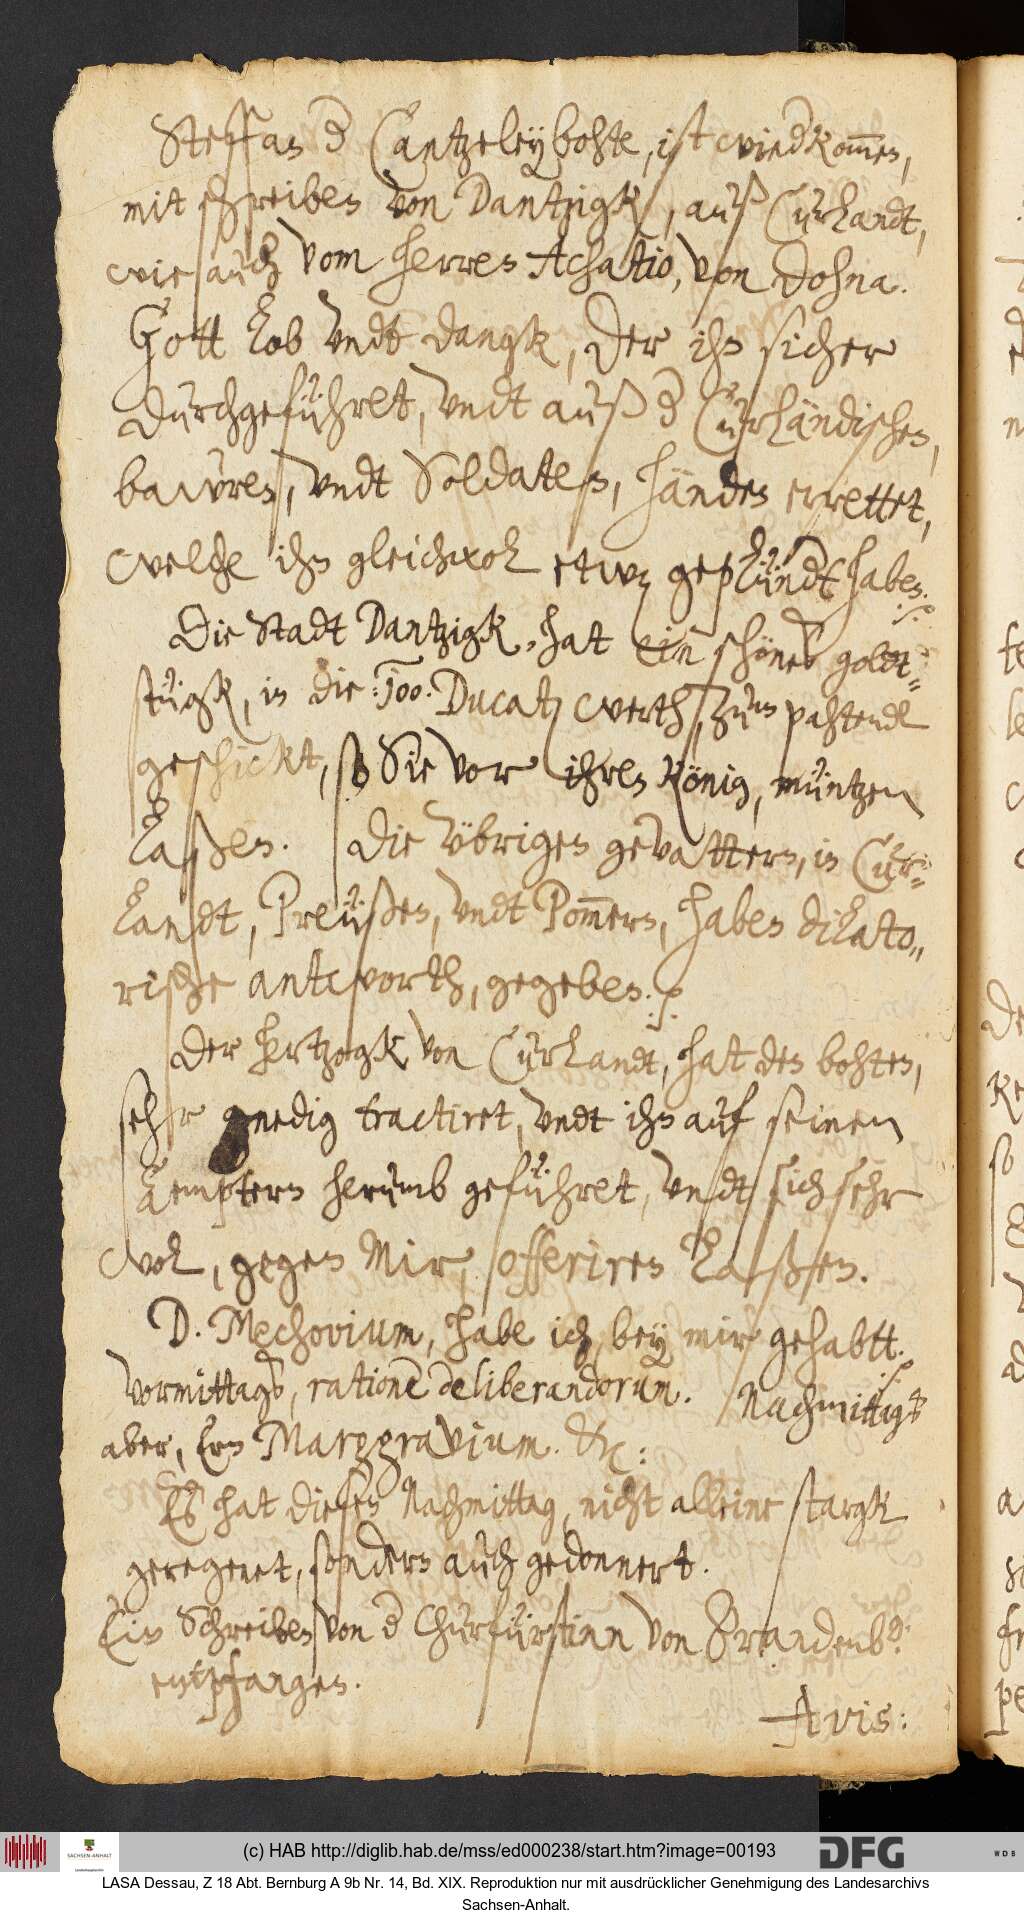 Steffan d Cantzeleybohte, ist wiedkom̄en,
mit schreiben von Dantzigk, auß Curlandt,
wie auch vom herren Achatio, von Dohna.
Gott Lob undt dangk, der ihn sicher
durchgeführet, vndt auß d Curländischen,
bawren, vndt Soldaten, händen errettet,
welche ihn gleichwol etwz geplündt haben. ./.
Die Stadt Dantzigk, hat ein schönes goldt-
stügk, in die :100: Ducatz werth, zum pahtendl
geschickt, so Sie vor ihren König, müntzen
Laßen. Die übrigen gevattern, in Cur-
landt, Preüßen, vndt Pom̄ern, haben dilato-
rische antwortt, gegeben. ./.
Der hertzogk von Curlandt, hat den bohten,
sehr gnedig tractiret, vndt ihn auf seinen
Aemptern herumb geführet, vndt sich sehr
wol, gegen Mir, offeriren Laßen.
D. Mechovium, habe ich, bey mir gehabtt. ./.
Vormittags, ratione deliberandorum. Nachmittags
aber, Ern Marggravium. &c:
Es hat diesen Nachmittag, nicht alleine stargk
geregenet, sondern auch gedonnert.
Ein Schreiben von d Churfürstinn von Brandenb:
entpfangen.
Avis:
(c) HAB http://diglib.hab.de/mss/ed000238/start.htm?image=00193
SACHSEN-ANHALT
DFG
WDB
LASA Dessau, Z 18 Abt. Bernburg A 9b Nr. 14, Bd. XIX. Reproduktion nur mit ausdrücklicher Genehmigung des Landesarchivs
Sachsen-Anhalt.